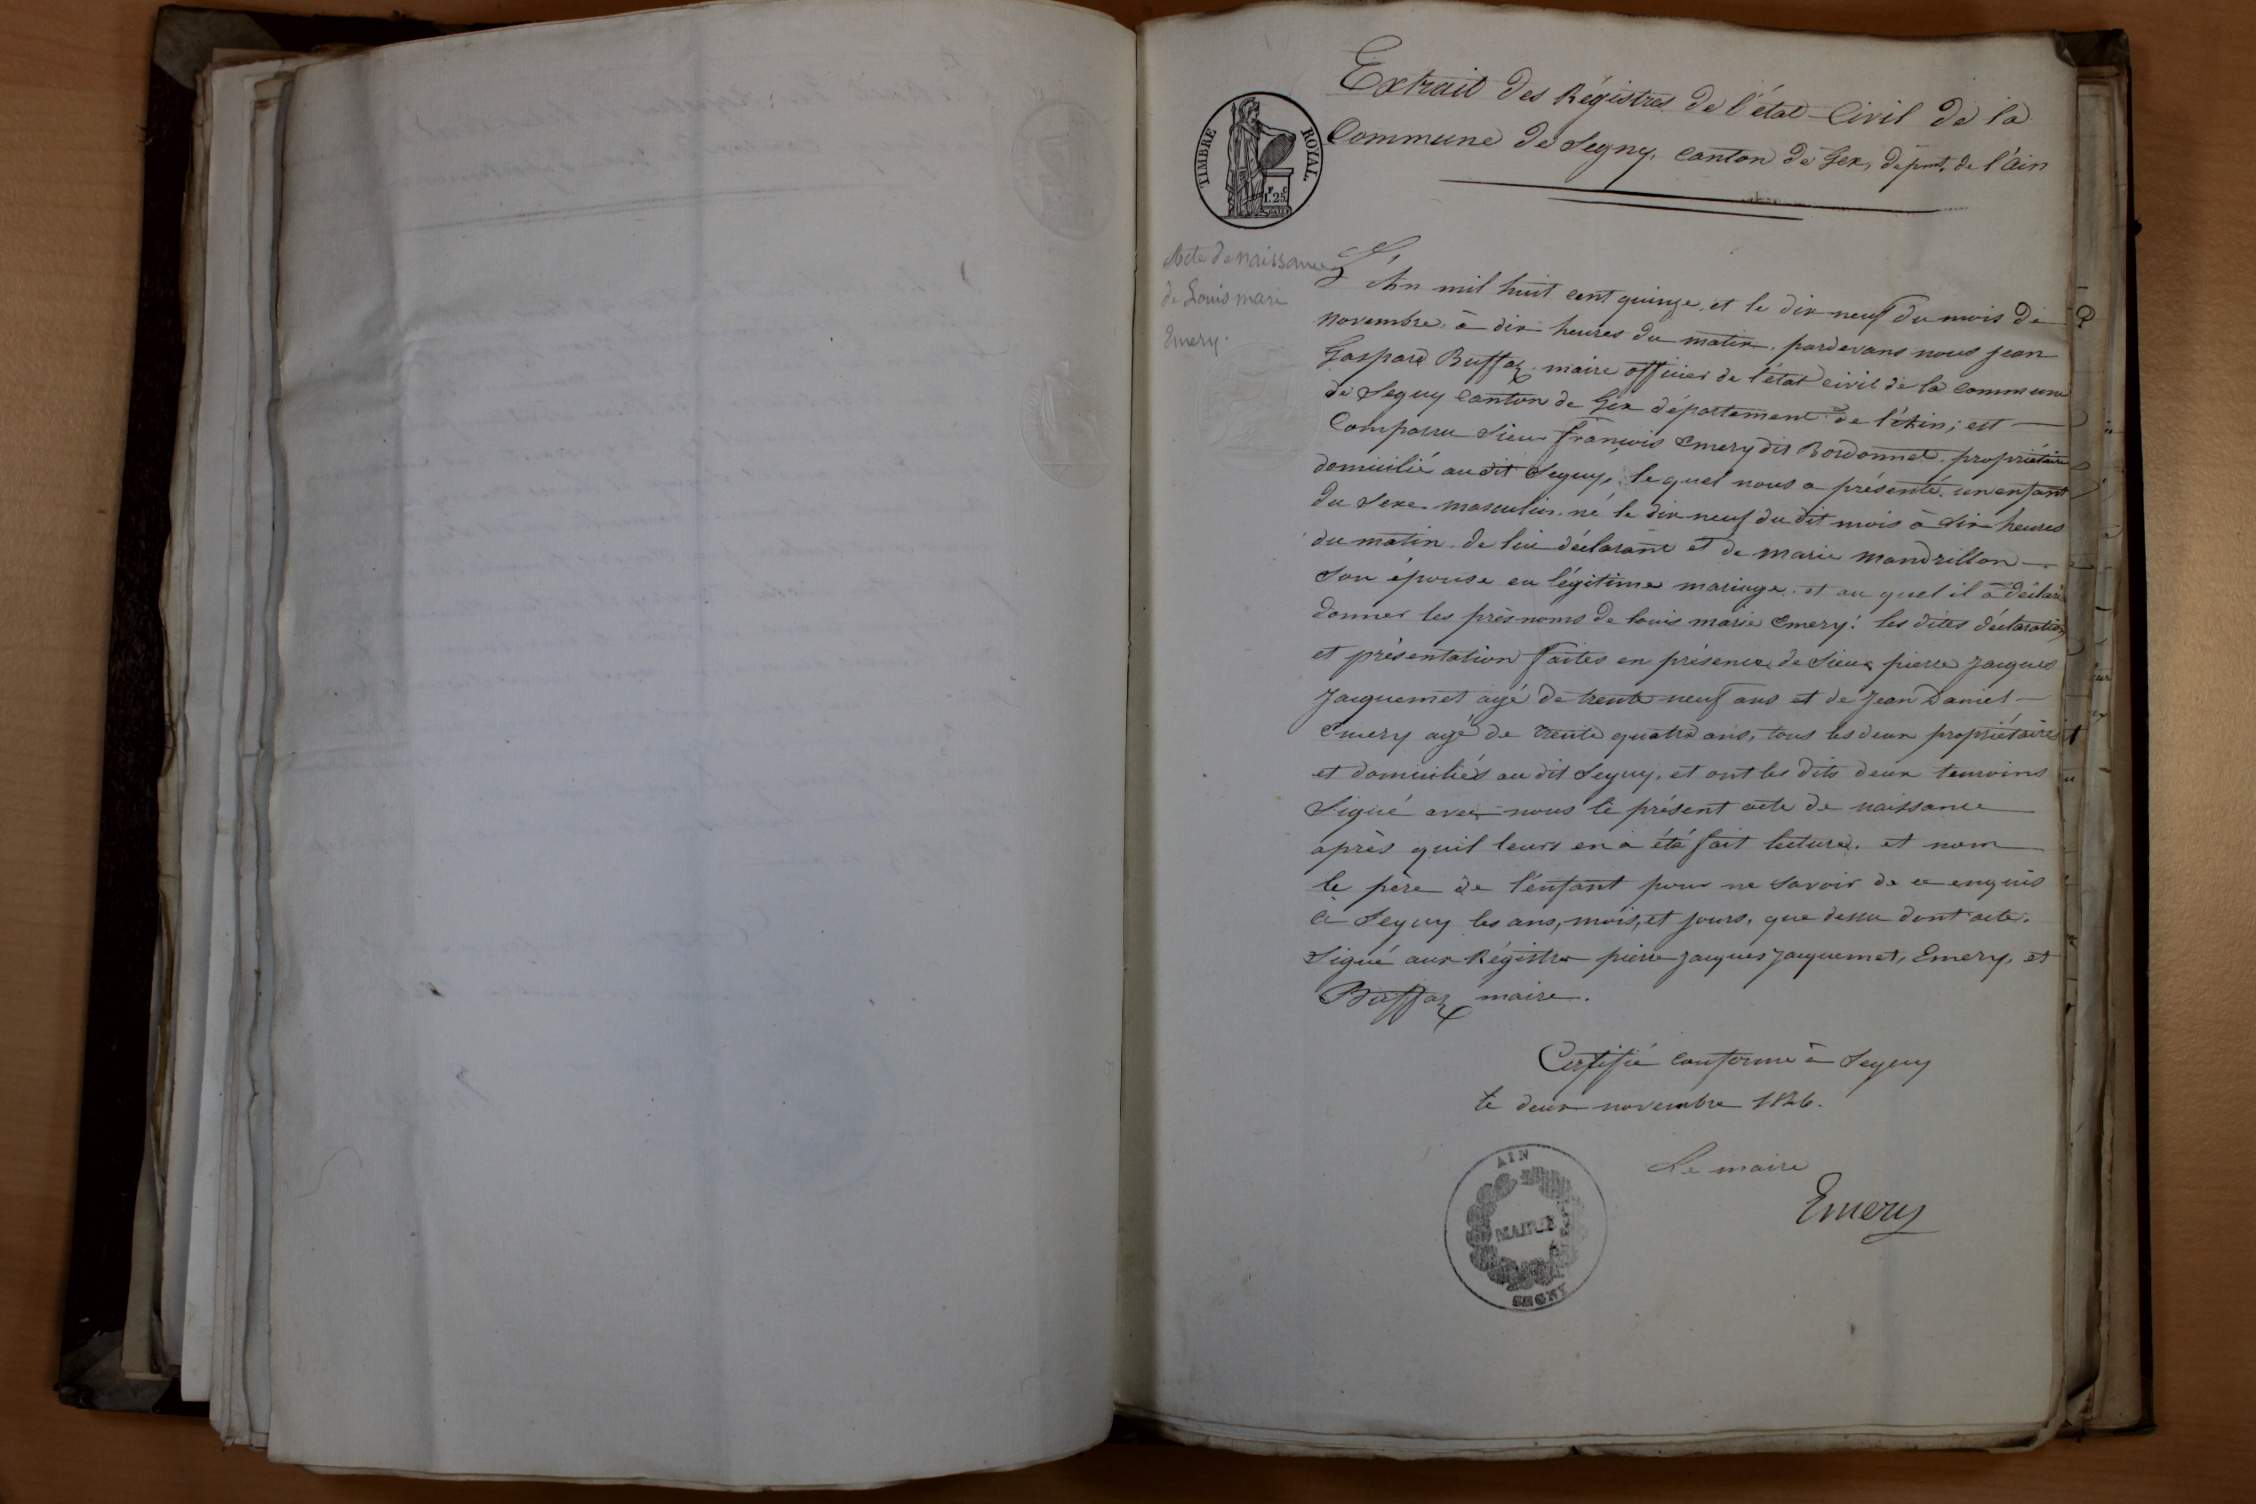 Extrait des Régistres de l'état-Civil de la
Commune de Segny, canton de Gex, dépmt. de l'ain
TIMBRE ROYAL
F. C.
1.25
Acte de naissance
de Louis marie
Emery.
L'An mil huit cent quinze, et le dix neuf du mois de
novembre, à dix heures du matin, pardevant nous jean
Gaspard Buffaz, maire officier de l'état civil de la commune
de Segny canton de Gex département de l'Ain; est
Comparu Sieur françois Emery dit Bordonnet, propriétaire
domicilié au dit Segny, le quel nous a présenté un enfant
du sexe masculin né le dix neuf du dit mois à six heures
du matin de lui déclarant et de marie mandrillon
son épouse en légitime mariage, et au quel il a déclaré
donner les prénoms de louis marie Emery: les dites déclaration
et présentation faites en présence de Sieur pierre jacques
jacquemet agé de trente neuf ans et de jean Daniel
Emery agé de trente quatre ans, tous les deux propriétaires
et domiciliés au dit Segny, et ont les dits deux temoins
signé avec nous le présent acte de naissance
après quil leurs en a été fait lecture, et nom
le père de l'enfant pour ne savoir de ce enquis
à Segny les ans, mois, et jours, que dessu dont acte.
Signé aux Régistre pierre jacques jacquemet, Emery, et
Buffaz maire.
Certifié conforme à Segny
le deux novembre 1836.
Le maire
Emery
AIN
MAIRIE
SEGNY